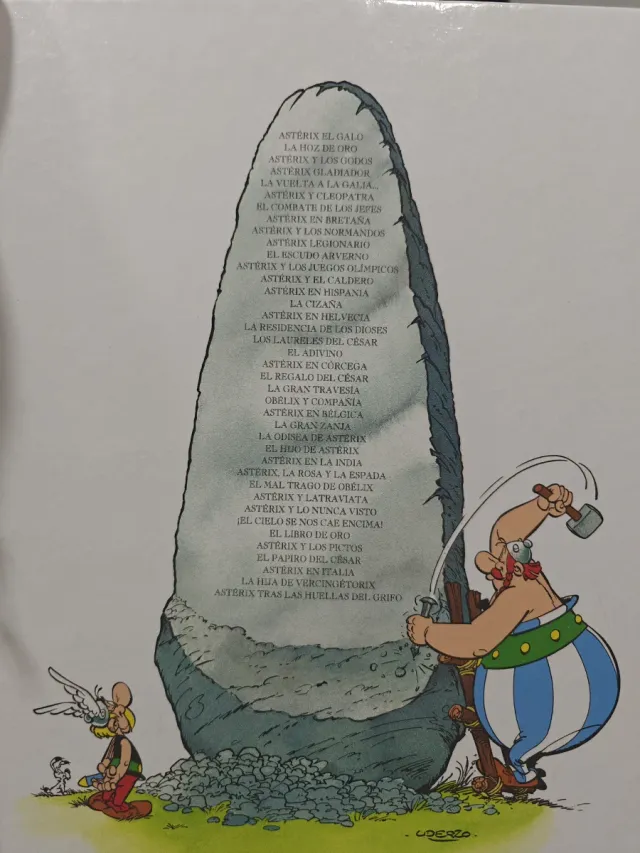 ASTÉRIX EL GALO
LA HOZ DE ORO
ASTÉRIX Y LOS GODOS
ASTÉRIX GLADIADOR
LA VUELTA A LA GALIA...
ASTÉRIX Y CLEOPATRA
EL COMBATE DE LOS JEFES
ASTÉRIX EN BRETAÑA
ASTÉRIX Y LOS NORMANDOS
ASTÉRIX LEGIONARIO
EL ESCUDO ARVERNO
ASTÉRIX Y LOS JUEGOS OLÍMPICOS
ASTÉRIX Y EL CALDERO
ASTÉRIX EN HISPANIA
LA CIZAÑA
ASTÉRIX EN HELVECIA
LA RESIDENCIA DE LOS DIOSES
LOS LAURELES DEL CÉSAR
EL ADIVINO
ASTÉRIX EN CÓRCEGA
EL REGALO DEL CÉSAR
LA GRAN TRAVESÍA
OBÉLIX Y COMPAÑÍA
ASTÉRIX EN BÉLGICA
LA GRAN ZANJA
LA ODISEA DE ASTÉRIX
EL HIJO DE ASTÉRIX
ASTÉRIX EN LA INDIA
ASTÉRIX, LA ROSA Y LA ESPADA
EL MAL TRAGO DE OBÉLIX
ASTÉRIX Y LATRAVIATA
ASTÉRIX Y LO NUNCA VISTO
¡EL CIELO SE NOS CAE ENCIMA!
EL LIBRO DE ORO
ASTÉRIX Y LOS PICTOS
EL PAPIRO DEL CÉSAR
ASTÉRIX EN ITALIA
LA HIJA DE VERCINGÉTORIX
ASTÉRIX TRAS LAS HUELLAS DEL GRIFO
UDERZO